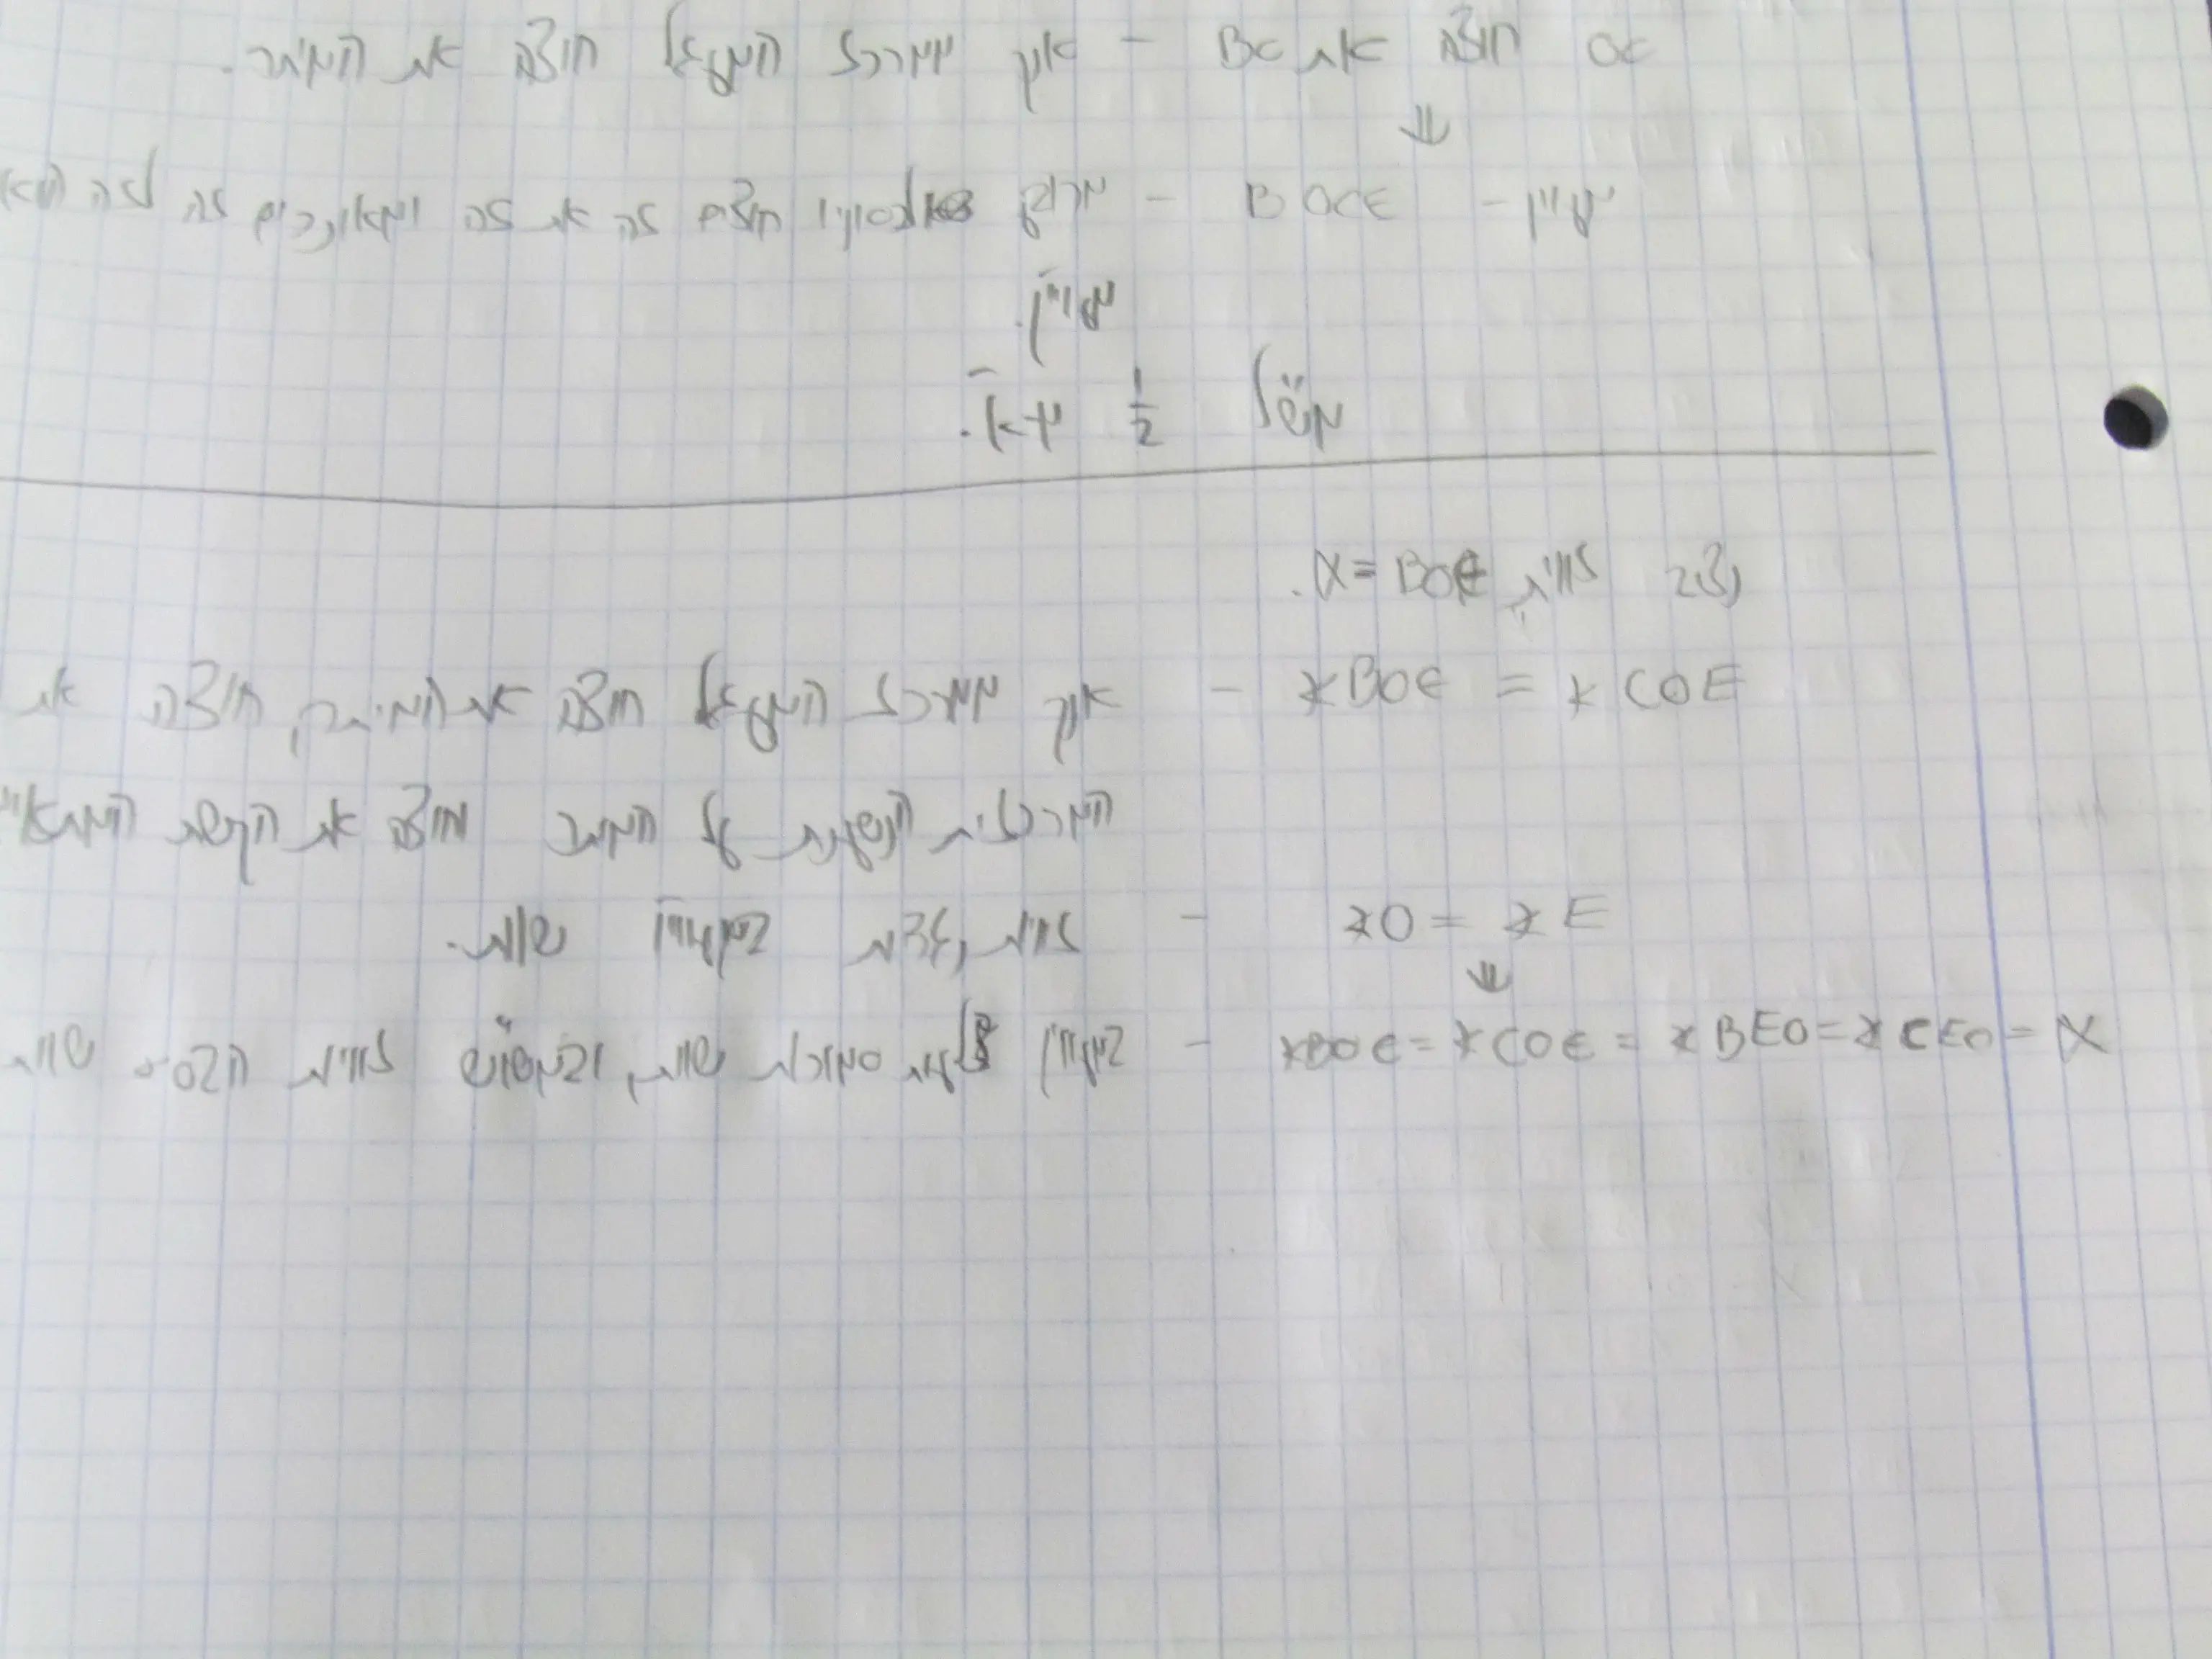 OE חוצה את BC - אנך ממרכז המעגל חוצה את המיתר.
⇓
מעויין - BOCE - מרובע שאלכסוניו חוצים זה את זה ומאונכים זה לזה הוא
מעויין.
מש"ל 1/2 א-
נציב זווית BOE = X.
∢BOE = ∢COE - אנך ממרכז המעגל חוצה את המיתר, חוצה את
המרכזית הנשענת על המיתר וחוצה את הקשת
∢O = ∢E - זוויות נגדיות במעויין שוות.
⇓
∢BOE = ∢COE = ∢BEO = ∢CEO = X - במעויין צלעות סמוכות שוות, ובמש"ש זוויות הבסיס שוות